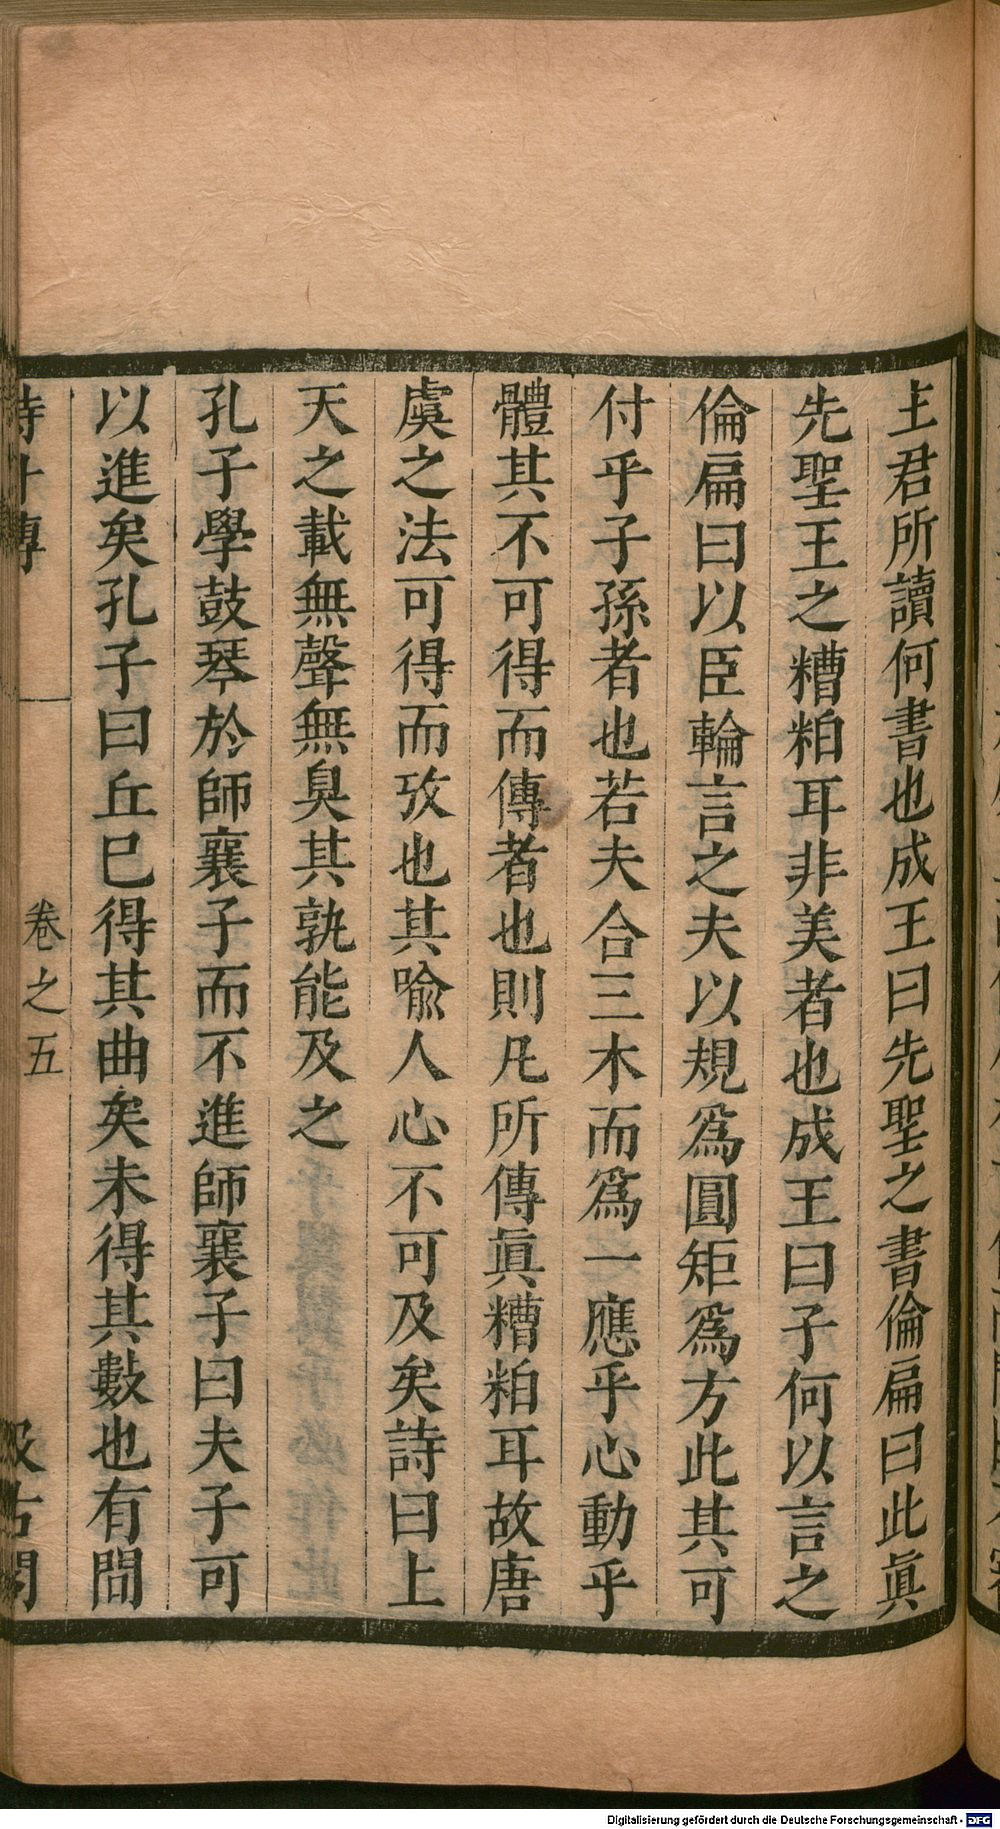 主君所讀何書也成王曰先聖之書倫扁曰此眞
先聖王之糟粕耳非美者也成王曰子何以言之
倫扁曰以臣輪言之夫以規爲圓矩爲方此其可
付乎子孫者也若夫合三木而爲一應乎心動乎
體其不可得而傳者也則凡所傳眞糟粕耳故唐
虞之法可得而攷也其喻人心不可及矣詩曰上
天之載無聲無臭其孰能及之
孔子學鼓琴於師襄子而不進師襄子曰夫子可
以進矣孔子曰丘巳得其曲矣未得其數也有間
詩外傳 卷之五 汲古閣
Digitalisierung gefördert durch die Deutsche Forschungsgemeinschaft - DFG